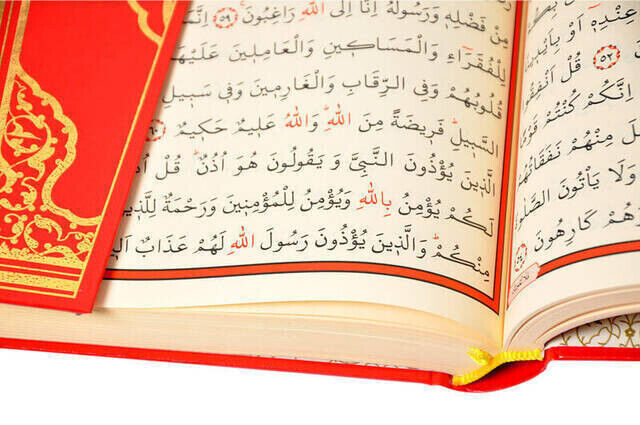 عِنْدِهِ اَوْ بِاَيْدِ
٥٢ قُلْ اَنْفِقُوا
اِنَّكُمْ كُنْتُمْ قَوْمًا
مِنْهُمْ نَفَقَاتُهُمْ
وَلَا يَأْتُونَ الصَّلٰو
هُمْ كَارِهُونَ
مِنْ فَضْلِهِ وَرَسُولُهُ اِنَّا اِلَى اللّٰهِ رَاغِبُونَ ٥٩ اِنَّمَا
لِلْفُقَرَاءِ وَالْمَسَاكِينِ وَالْعَامِلِينَ عَلَيْهَا
قُلُوبُهُمْ وَفِي الرِّقَابِ وَالْغَارِمِينَ وَفِي سَبِيلِ
السَّبِيلِ فَرِيضَةً مِنَ اللّٰهِ وَاللّٰهُ عَلِيمٌ حَكِيمٌ ٦٠
الَّذِينَ يُؤْذُونَ النَّبِيَّ وَيَقُولُونَ هُوَ اُذُنٌ قُلْ اُذُ
لَكُمْ يُؤْمِنُ بِاللّٰهِ وَيُؤْمِنُ لِلْمُؤْمِنِينَ وَرَحْمَةٌ لِلَّذِينَ
مِنْكُمْ وَالَّذِينَ يُؤْذُونَ رَسُولَ اللّٰهِ لَهُمْ عَذَابٌ اَلِي